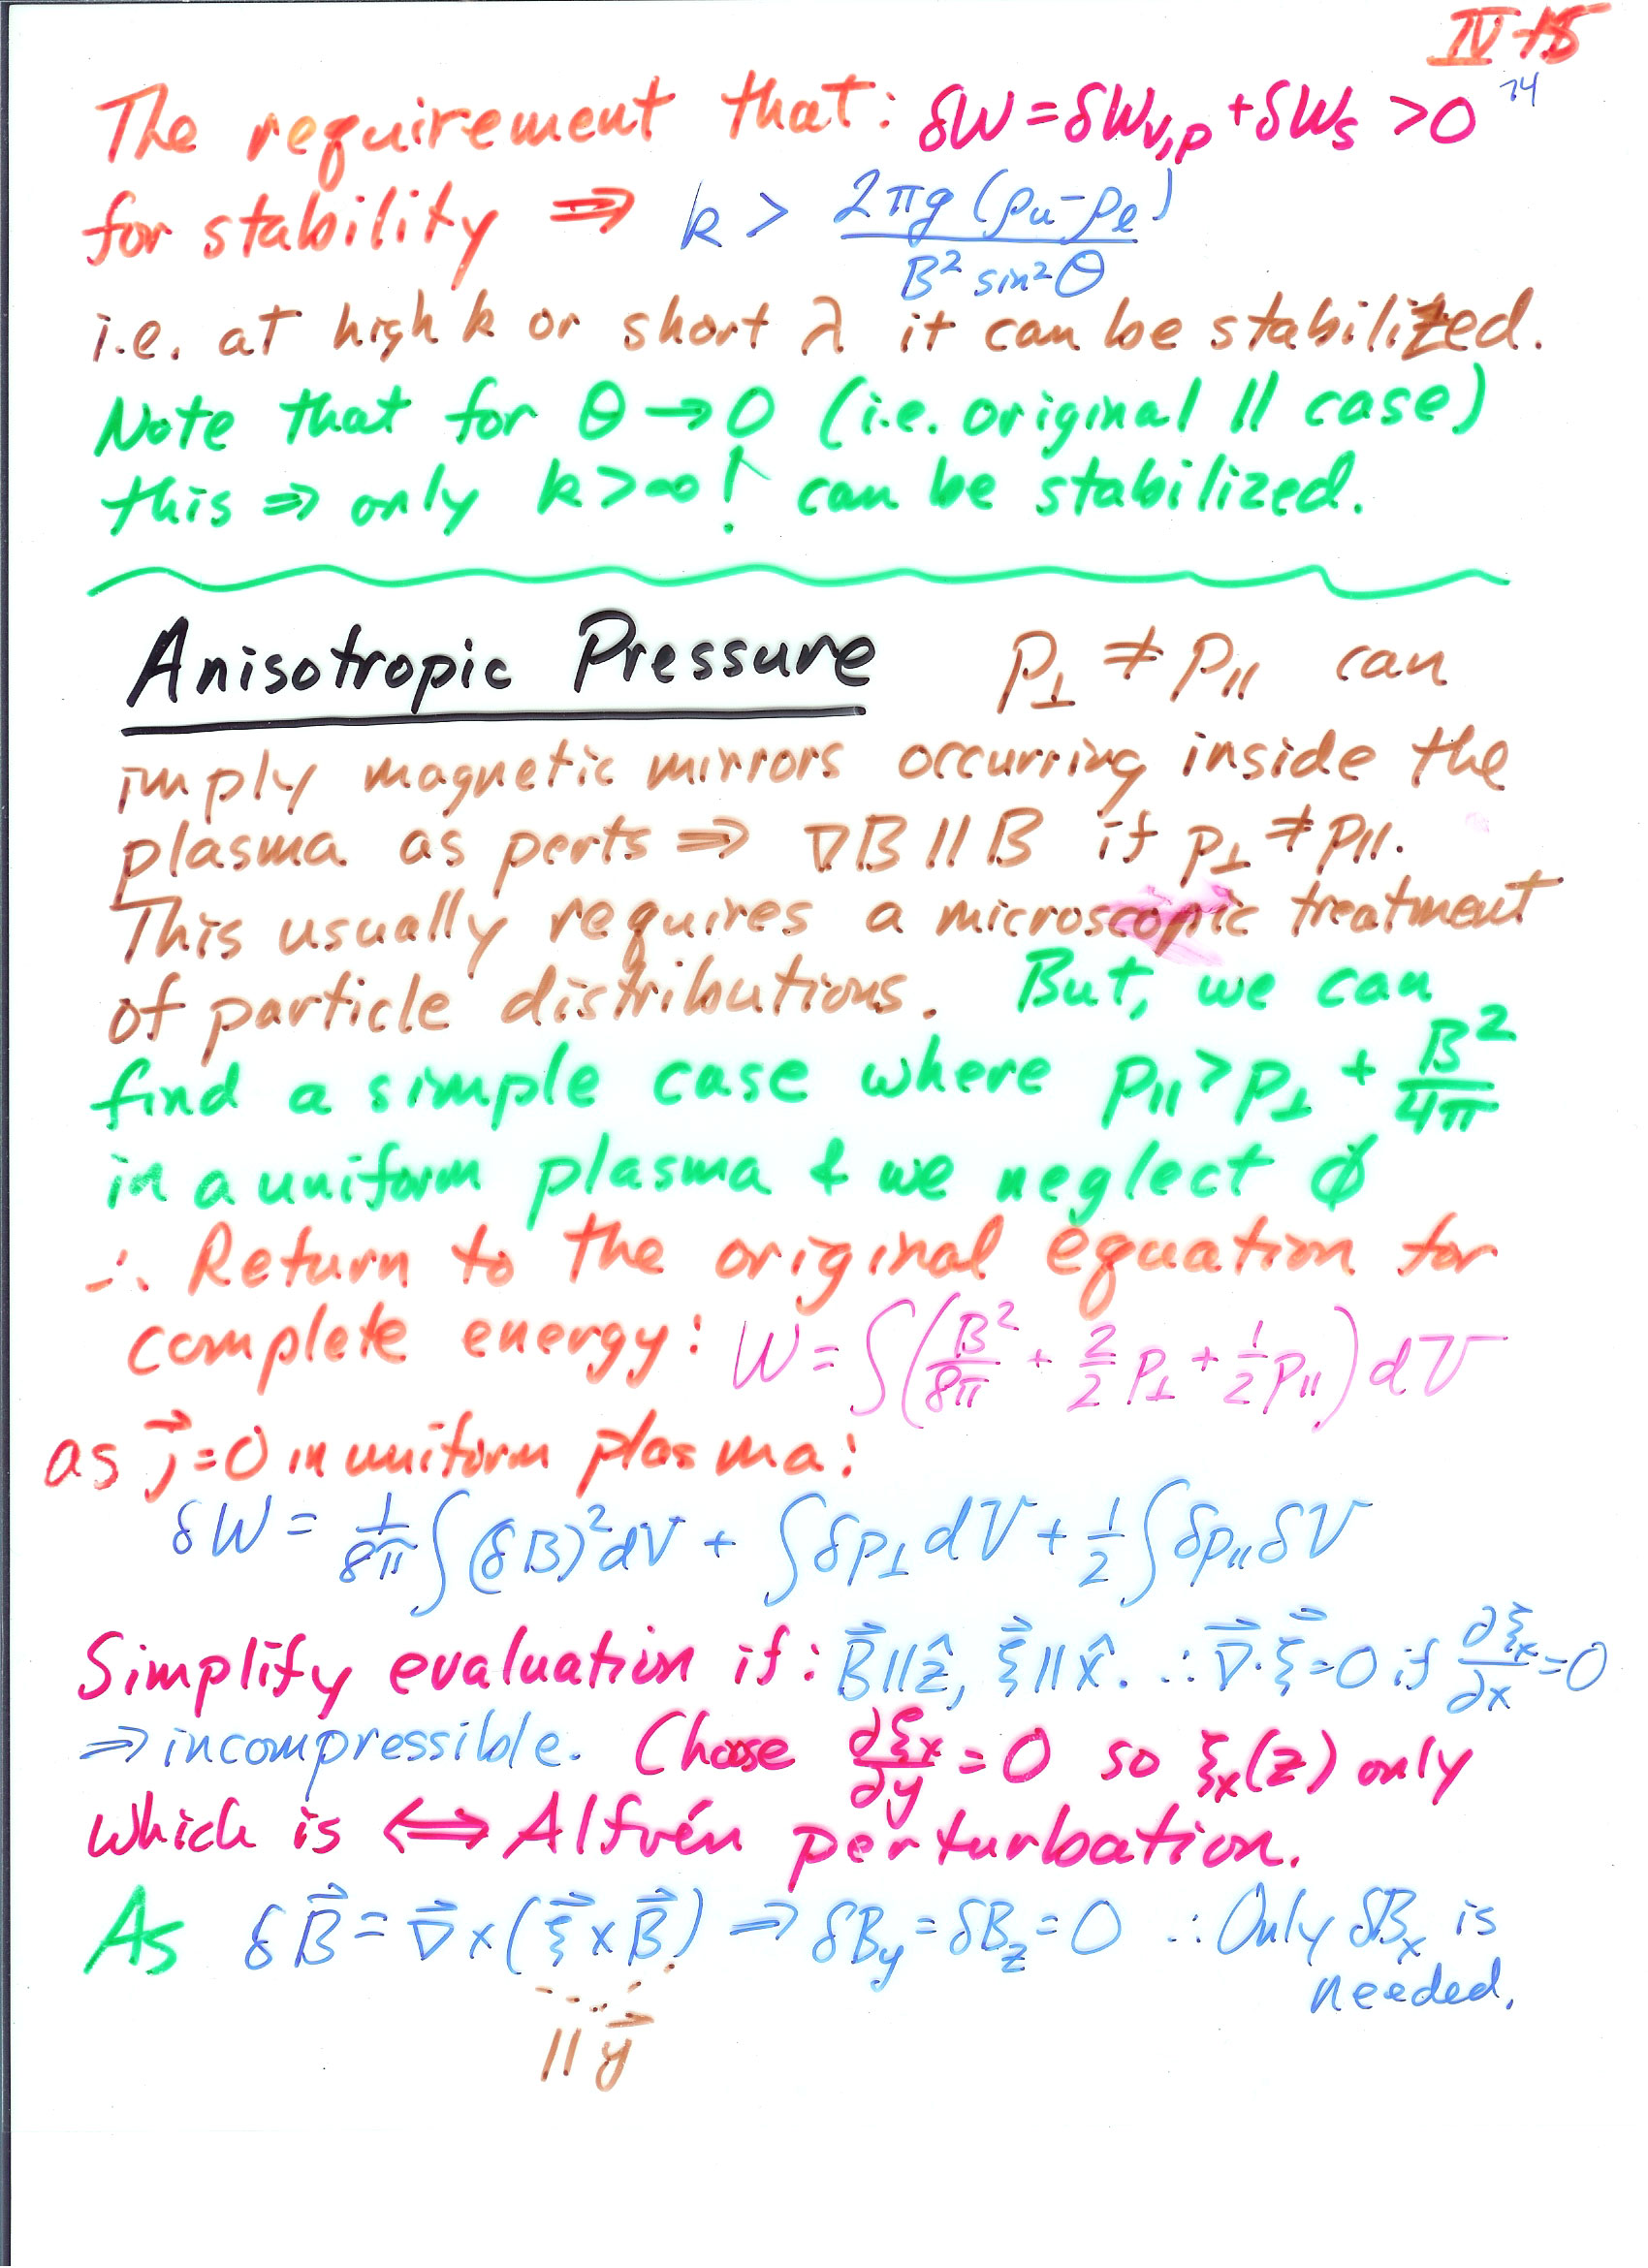 IV-15
14
The requirement that: δW = δW_{V,P} + δW_S > 0
for stability ⇒ k > 2πg(ρ_u-ρ_l) / B² sin²θ
i.e. at high k or short λ it can be stabilized.
Note that for θ → 0 (i.e. original || case)
this ⇒ only k > ∞! can be stabilized.
Anisotropic Pressure p_⊥ ≠ p_|| can
imply magnetic mirrors occurring inside the
plasma as perts ⇒ ∇B || B if p_⊥ ≠ p_||.
This usually requires a microscopic treatment
of particle distributions. But, we can
find a simple case where p_|| > p_⊥ + B²/4π
in a uniform plasma & we neglect ϕ
∴ Return to the original equation for
complete energy: W = ∫(B²/8π + 2/2 p_⊥ + 1/2 p_||) dV
as j⃗ = 0 in uniform plasma:
δW = 1/8π ∫(δB)² dV + ∫δp_⊥ dV + 1/2 ∫δp_|| δV
Simplify evaluation if: B⃗ || ẑ, ξ⃗ || x̂. ∴ ∇⃗·ξ⃗ = 0 if ∂ξ_x/∂x = 0
⇒ incompressible. Choose ∂ξ_x/∂y = 0 so ξ_x(z) only
which is ⟺ Alfvén perturbation.
As δB⃗ = ∇⃗ × (ξ⃗ × B⃗) ⇒ δB_y = δB_z = 0 ∴ Only δB_x is
needed.
|| y⃗